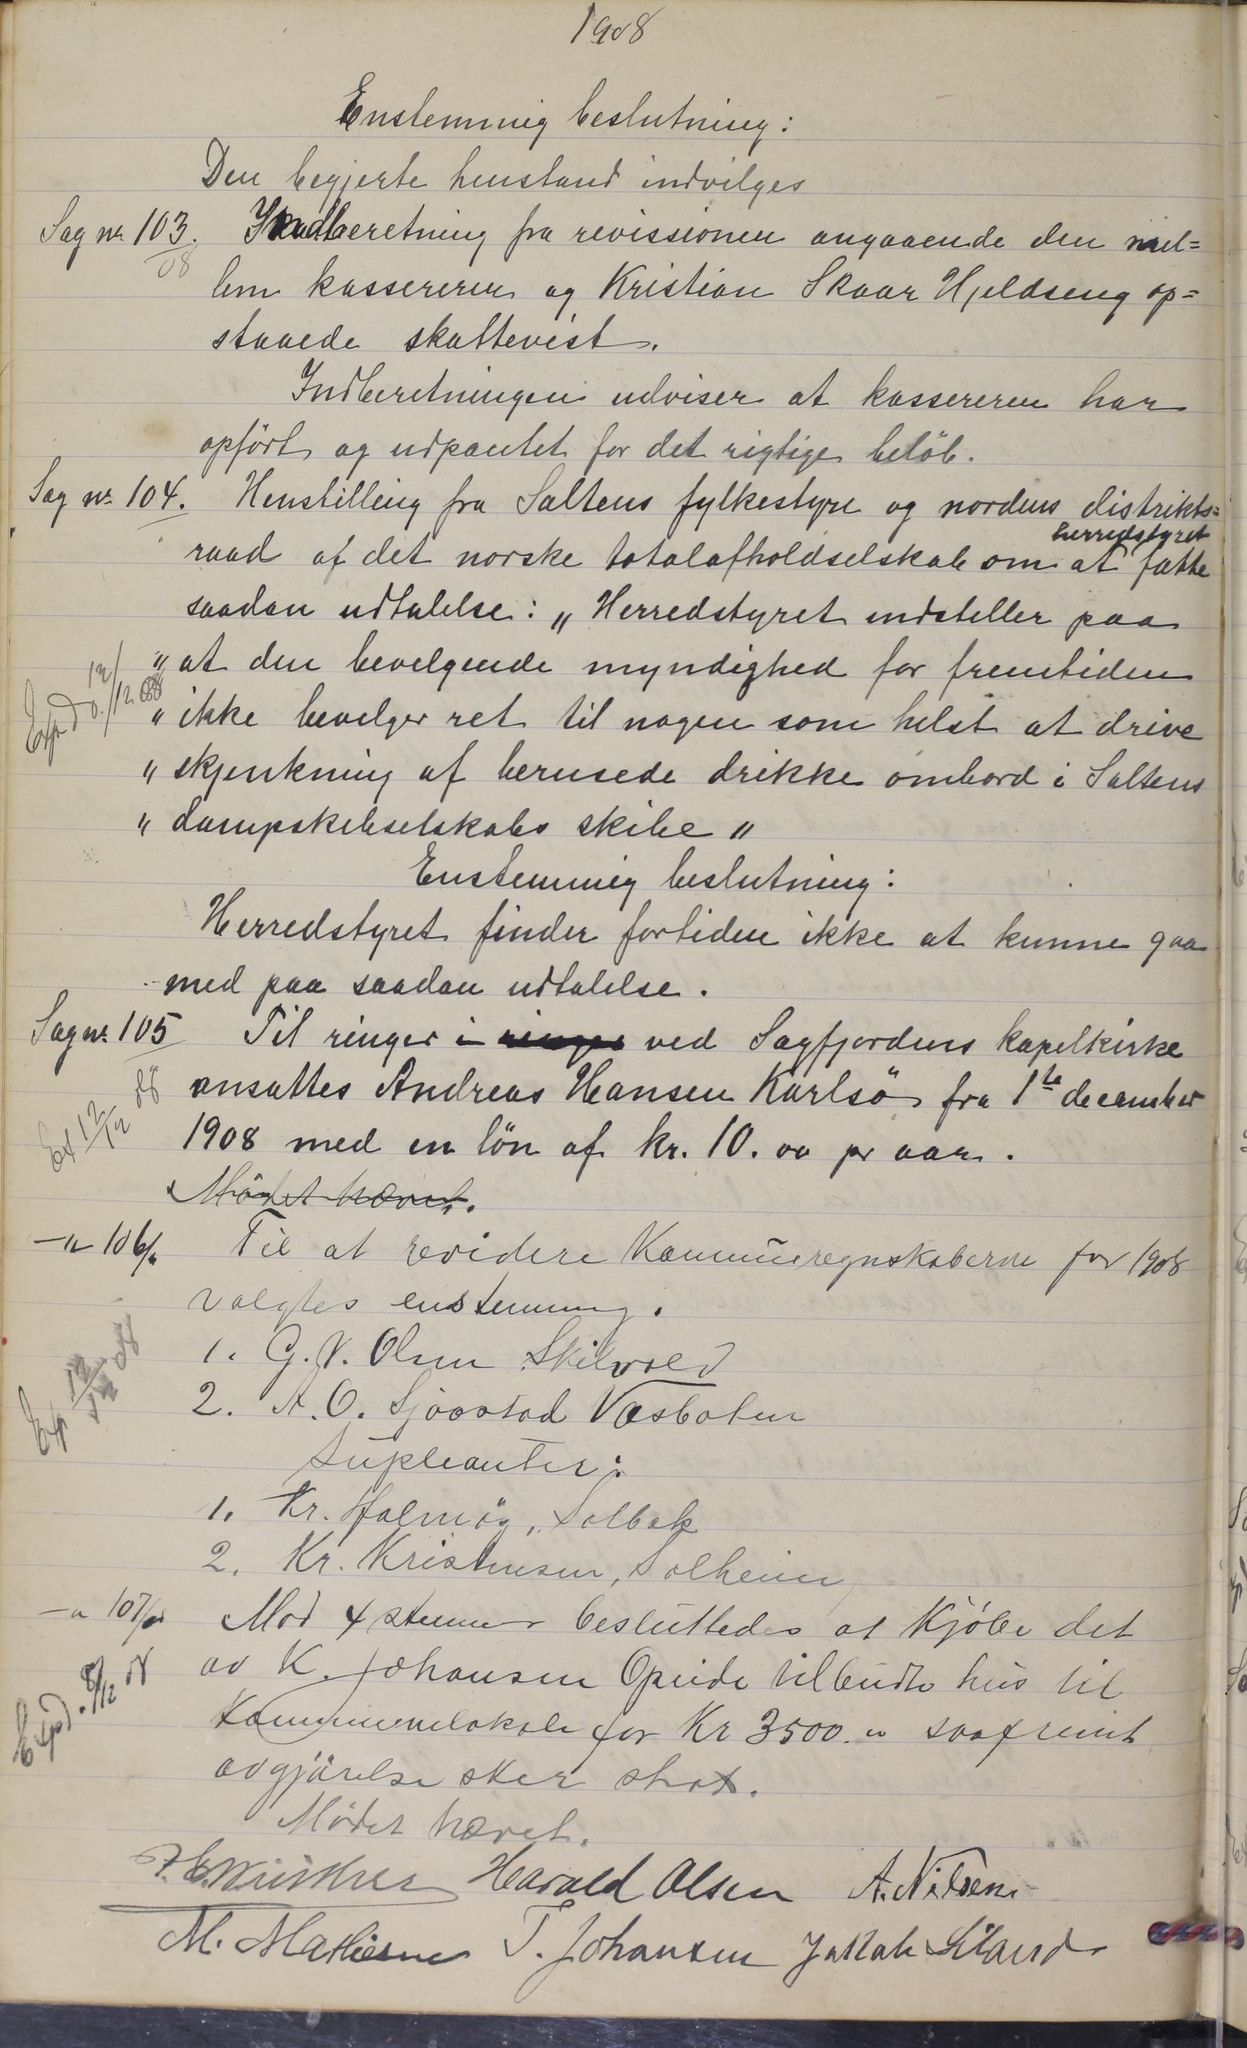 1908
Enstemmig beslutning:
Den begjerte henstand indvilges
Sag nr. 103. Indberetning fra revissionen angaaende den mel=
08
lem kassereren og Kristian Skaar Hjeldseng op=
staaede skattevist.
Indberetningen udviser at kassereren har
opført og udpantet for det rigtige beløb.
Sag nr. 104. Henstilling fra Saltens fylkestyre og nordens distrikts=
herredstyret
raad af det norske totalafholdselskab om at fatte
saadan udtalelse: „ Herredstyret indstiller paa
„ at den bevelgende myndighed for fremtiden
Expd. 12/12 08
„ ikke bevelger ret til nogen som helst at drive
„ skjenkning af berusede drikke ombord i Saltens
„ dampskibselskabs skibe „
Enstemmig beslutning:
Herredstyret finder fortiden ikke at kunne gaa
med paa saadan udtalelse.
Sag nr. 105 Til ringer i ringer ved Sagfjordens kapelkirke
ansattes Andreas Hansen Karlsø fra 1te december
Ex 12/12 08
1908 med en løn af kr. 10.00 pr aar.
Mødet hævet.
—„— 106/08 Til at revidere Kommuneregnskaberne for 1908
valgtes enstemmig.
1. G. V. Olsen Skilvold
Exp. 12/12 08
2. A. O. Sjøvstad Væsbotn
Supleanter:
1. Kr. Holmøy, Solbak
2. Kr. Kristensen, Solheim
—„ 107/08 Mod 4 stemmer besluttedes at kjøbe det
av K. Johansen Opeide tilbudte hus til
Expd. 8/12 08
Kommunelokale for Kr 3500.00 saafremt
avgjørelse sker strax.
Mødet hævet.
Harald Olsen A. Nilsen
M. Mathisen T. Johansen Jakob Liland